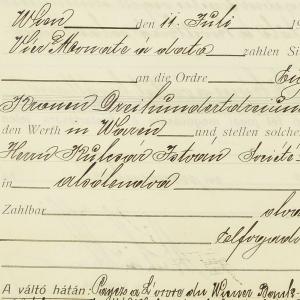 Wien den 11. Juli 19
Vier Monate a dato zahlen Si
an die Ordre
Kronen Dreihundertdreiun
den Werth in Waren und stellen solche
Herrn Kulcsár István Societé
in alsólendva
Zahlbar
elfogad
A váltó hátán: Payez a l'ordre du Wiener Bank-